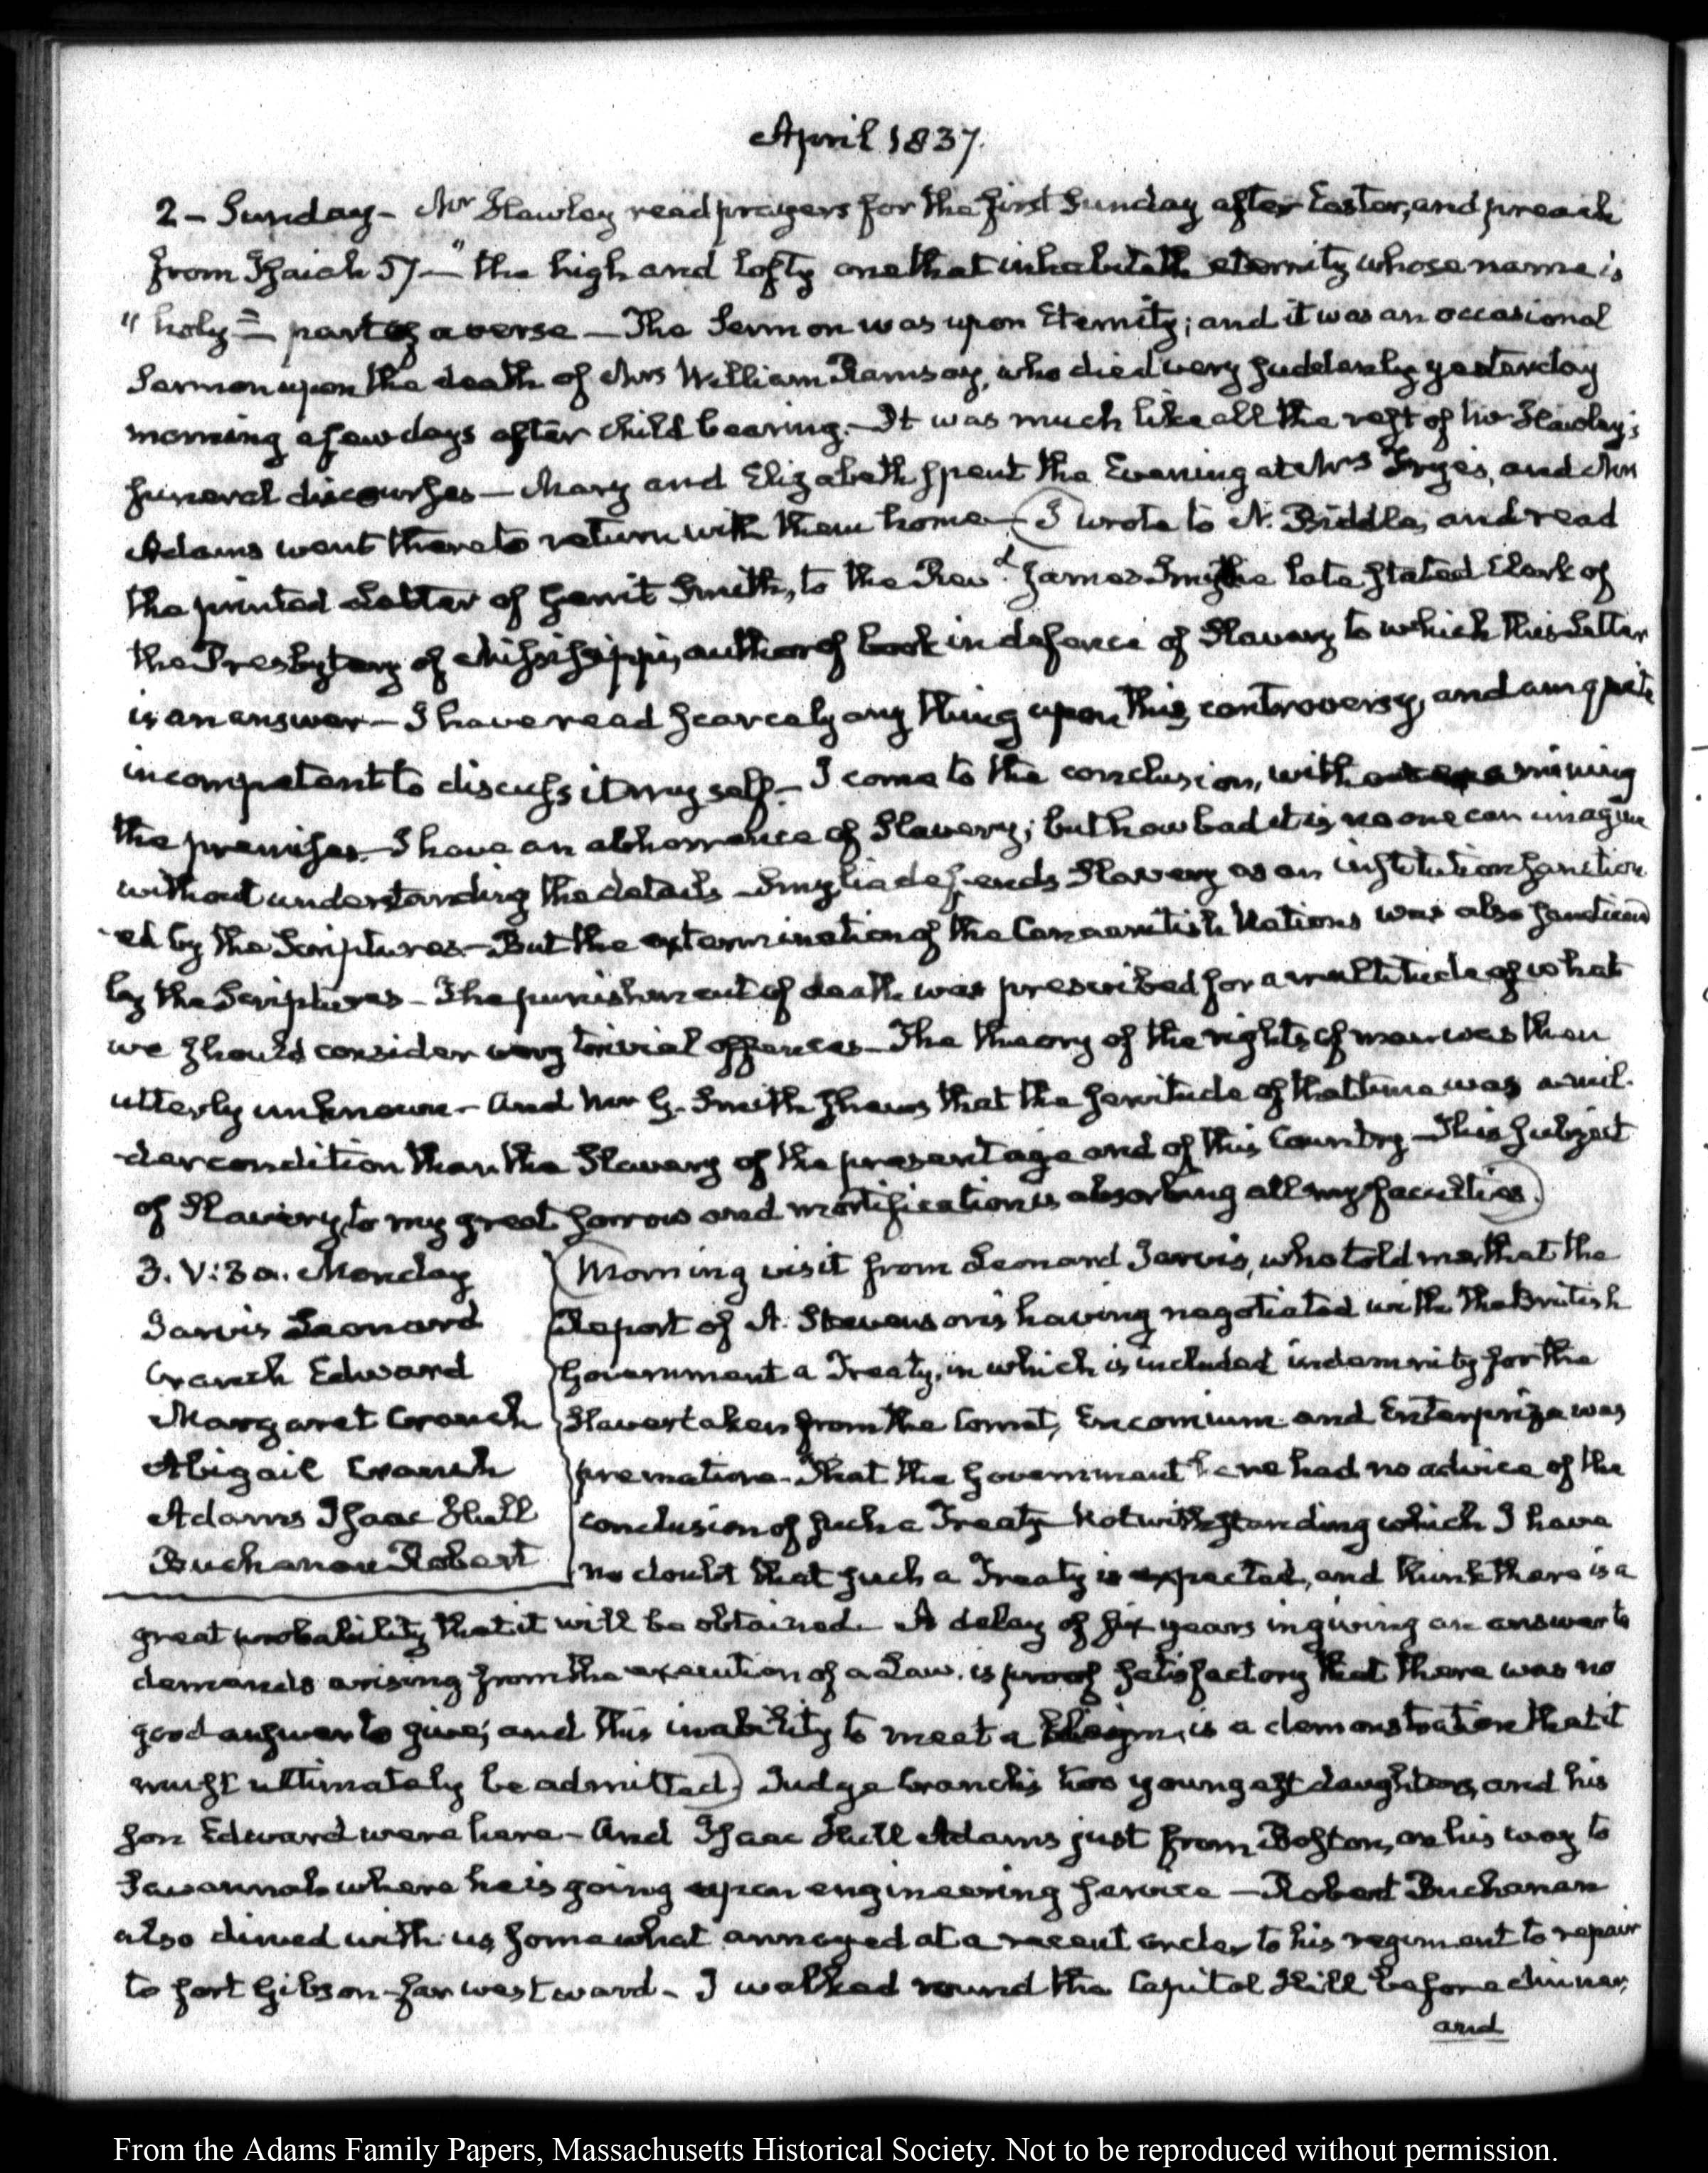 April 1837.
2 - Sunday - Mr Hawley read prayers for the first Sunday after Easter, and preach
from Isaiah 57 - "the high and lofty one that inhabiteth eternity whose name is
"holy" - part of a verse - The Sermon was upon Eternity; and it was an occasional
Sermon upon the death of Mrs William Ramsay, who died very suddenly yesterday
morning a few days after child bearing. - It was much like all the rest of Mr Hawley's
funeral discourses - Mary and Elizabeth spent the Evening at Mrs Frye's, and Mrs
Adams went there to return with them home - (I wrote to N. Biddle, and read
the printed Letter of Gerrit Smith, to the Revd. James Smylie late stated Clerk of
the Presbytery of Mississippi, author of book in defence of Slavery to which this Letter
is an answer - I have read scarcely any thing upon this controversy, and am quite
incompetent to discuss it myself - I come to the conclusion, without examining
the premises. - I have an abhorrence of Slavery; but how bad it is no one can imagine
without understanding the details - Smylie defends Slavery as an institution sanction
ed by the Scriptures - But the extermination of the Canaanitish Nations was also sanctioned
by the Scriptures - The punishment of death was prescribed for a multitude of what
we should consider very trivial offences - The theory of the rights of man was then
utterly unknown - And Mr G. Smith shews that the servitude of that time was a mil-
der condition than the Slavery of the present age and of this Country - This subject
of Slavery, to my great sorrow and mortification is absorbing all my faculties.)
3. V: 30. Monday
Jarvis Leonard
Cranch Edward
Margaret Cranch
Abigail Cranch
Adams Isaac Hull
Buchanan Robert
(Morning visit from Leonard Jarvis, who told me that the
Report of A. Stevenson's having negotiated with the British
Government a Treaty, in which is included indemnity for the
Slaves taken from the Comet, Encomium and Enterprize was
premature - That the Government here had no advice of the
conclusion of such a Treaty - Notwithstanding which I have
no doubt that such a Treaty is expected, and think there is a
great probability that it will be obtained. A delay of six years in giving an answer to
demands arising from the execution of a Law, is proof satisfactory that there was no
good answer to give; and this inability to meet a Claim, is a demonstration that it
must ultimately be admitted.) Judge Cranch's two youngest daughters, and his
son Edward were here - And Isaac Hull Adams just from Boston, on his way to
Savannah where he is going upon engineering service - Robert Buchanan
also dined with us somewhat annoyed at a recent order to his regiment to repair
to Fort Gibson - far westward - I walked round the Capitol Hill before dinner,
and
From the Adams Family Papers, Massachusetts Historical Society. Not to be reproduced without permission.